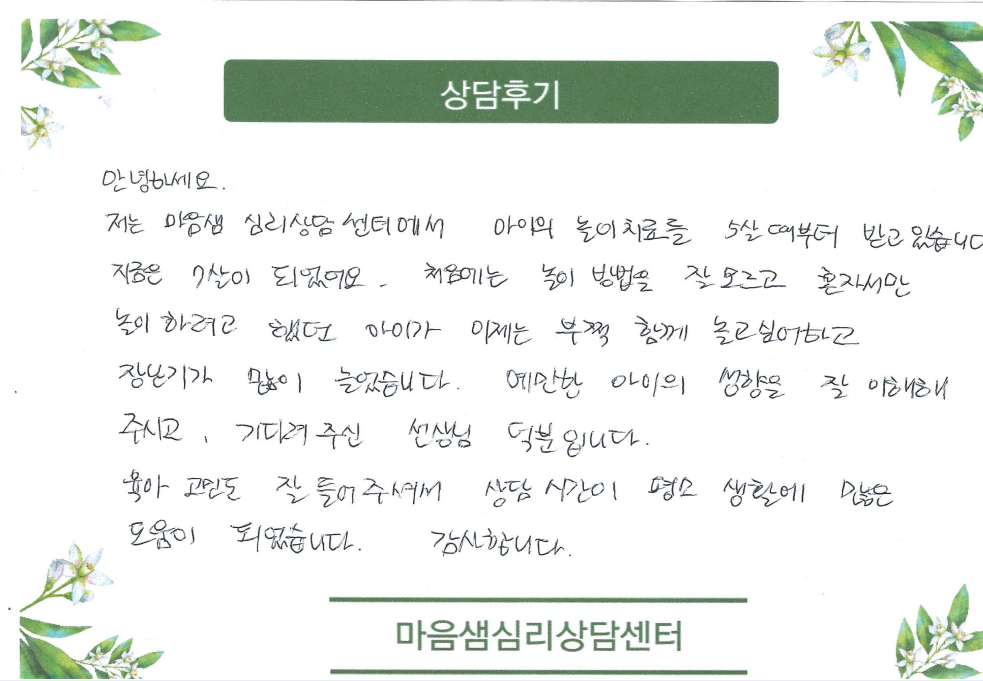 상담후기
안녕하세요.
저는 마음샘 심리상담센터에서 아이의 놀이치료를 5살 때부터 받고 있습니다
지금은 7살이 되었어요. 처음에는 놀이 방법을 잘 모르고 혼자서만
놀이 하려고 했던 아이가 이제는 부쩍 함께 놀고싶어하고
장난기가 많이 늘었습니다. 예민한 아이의 성향을 잘 이해해
주시고, 기다려 주신 선생님 덕분입니다.
육아 고민도 잘 들어주셔서 상담 시간이 평소 생활에 많은
도움이 되었습니다. 감사합니다.
마음샘심리상담센터